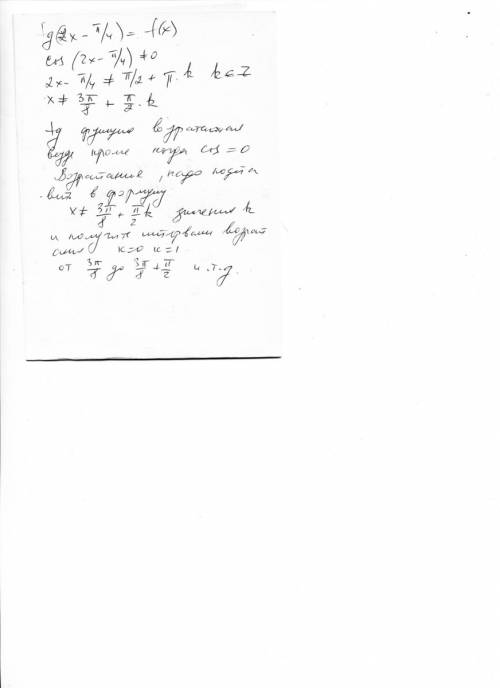 tg(2x - π/4) = f(x)
cos (2x - π/4) ≠ 0
2x - π/4 ≠ π/2 + π·k k ∈ Z
x ≠ 3π/8 + π/2·k
tg функция возрастающая
везде кроме когда cos = 0
Возрастание, надо подста
вить в формулу
x ≠ 3π/8 + π/2 k значения k
и получите интервалы возрат
ания k=0 k=1
от 3π/8 до 3π/8 + π/2 и т.д.